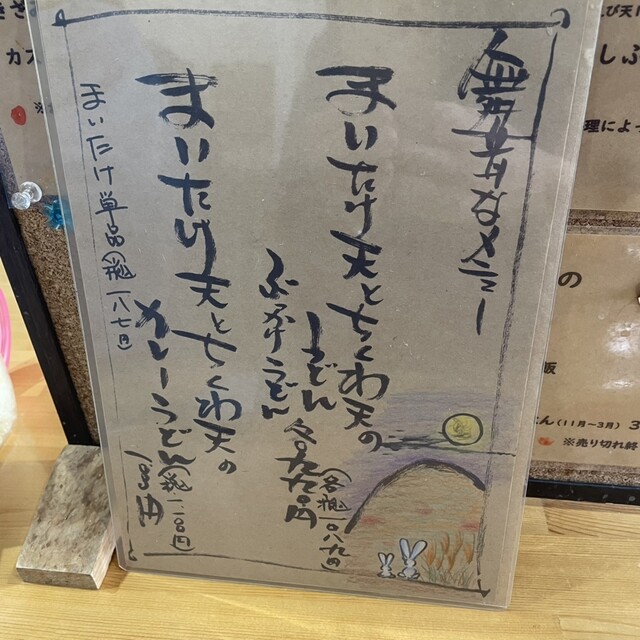 舞茸なメニュー
まいたけ天とちくわ天の
うどん
ぶっかけうどん
各九九〇円
(各税一〇八九円)
まいたけ天とちくわ天の
カレーうどん
(税一一〇〇円)
まいたけ単品
一八七円
の
(11月〜3月)
※売り切れ終